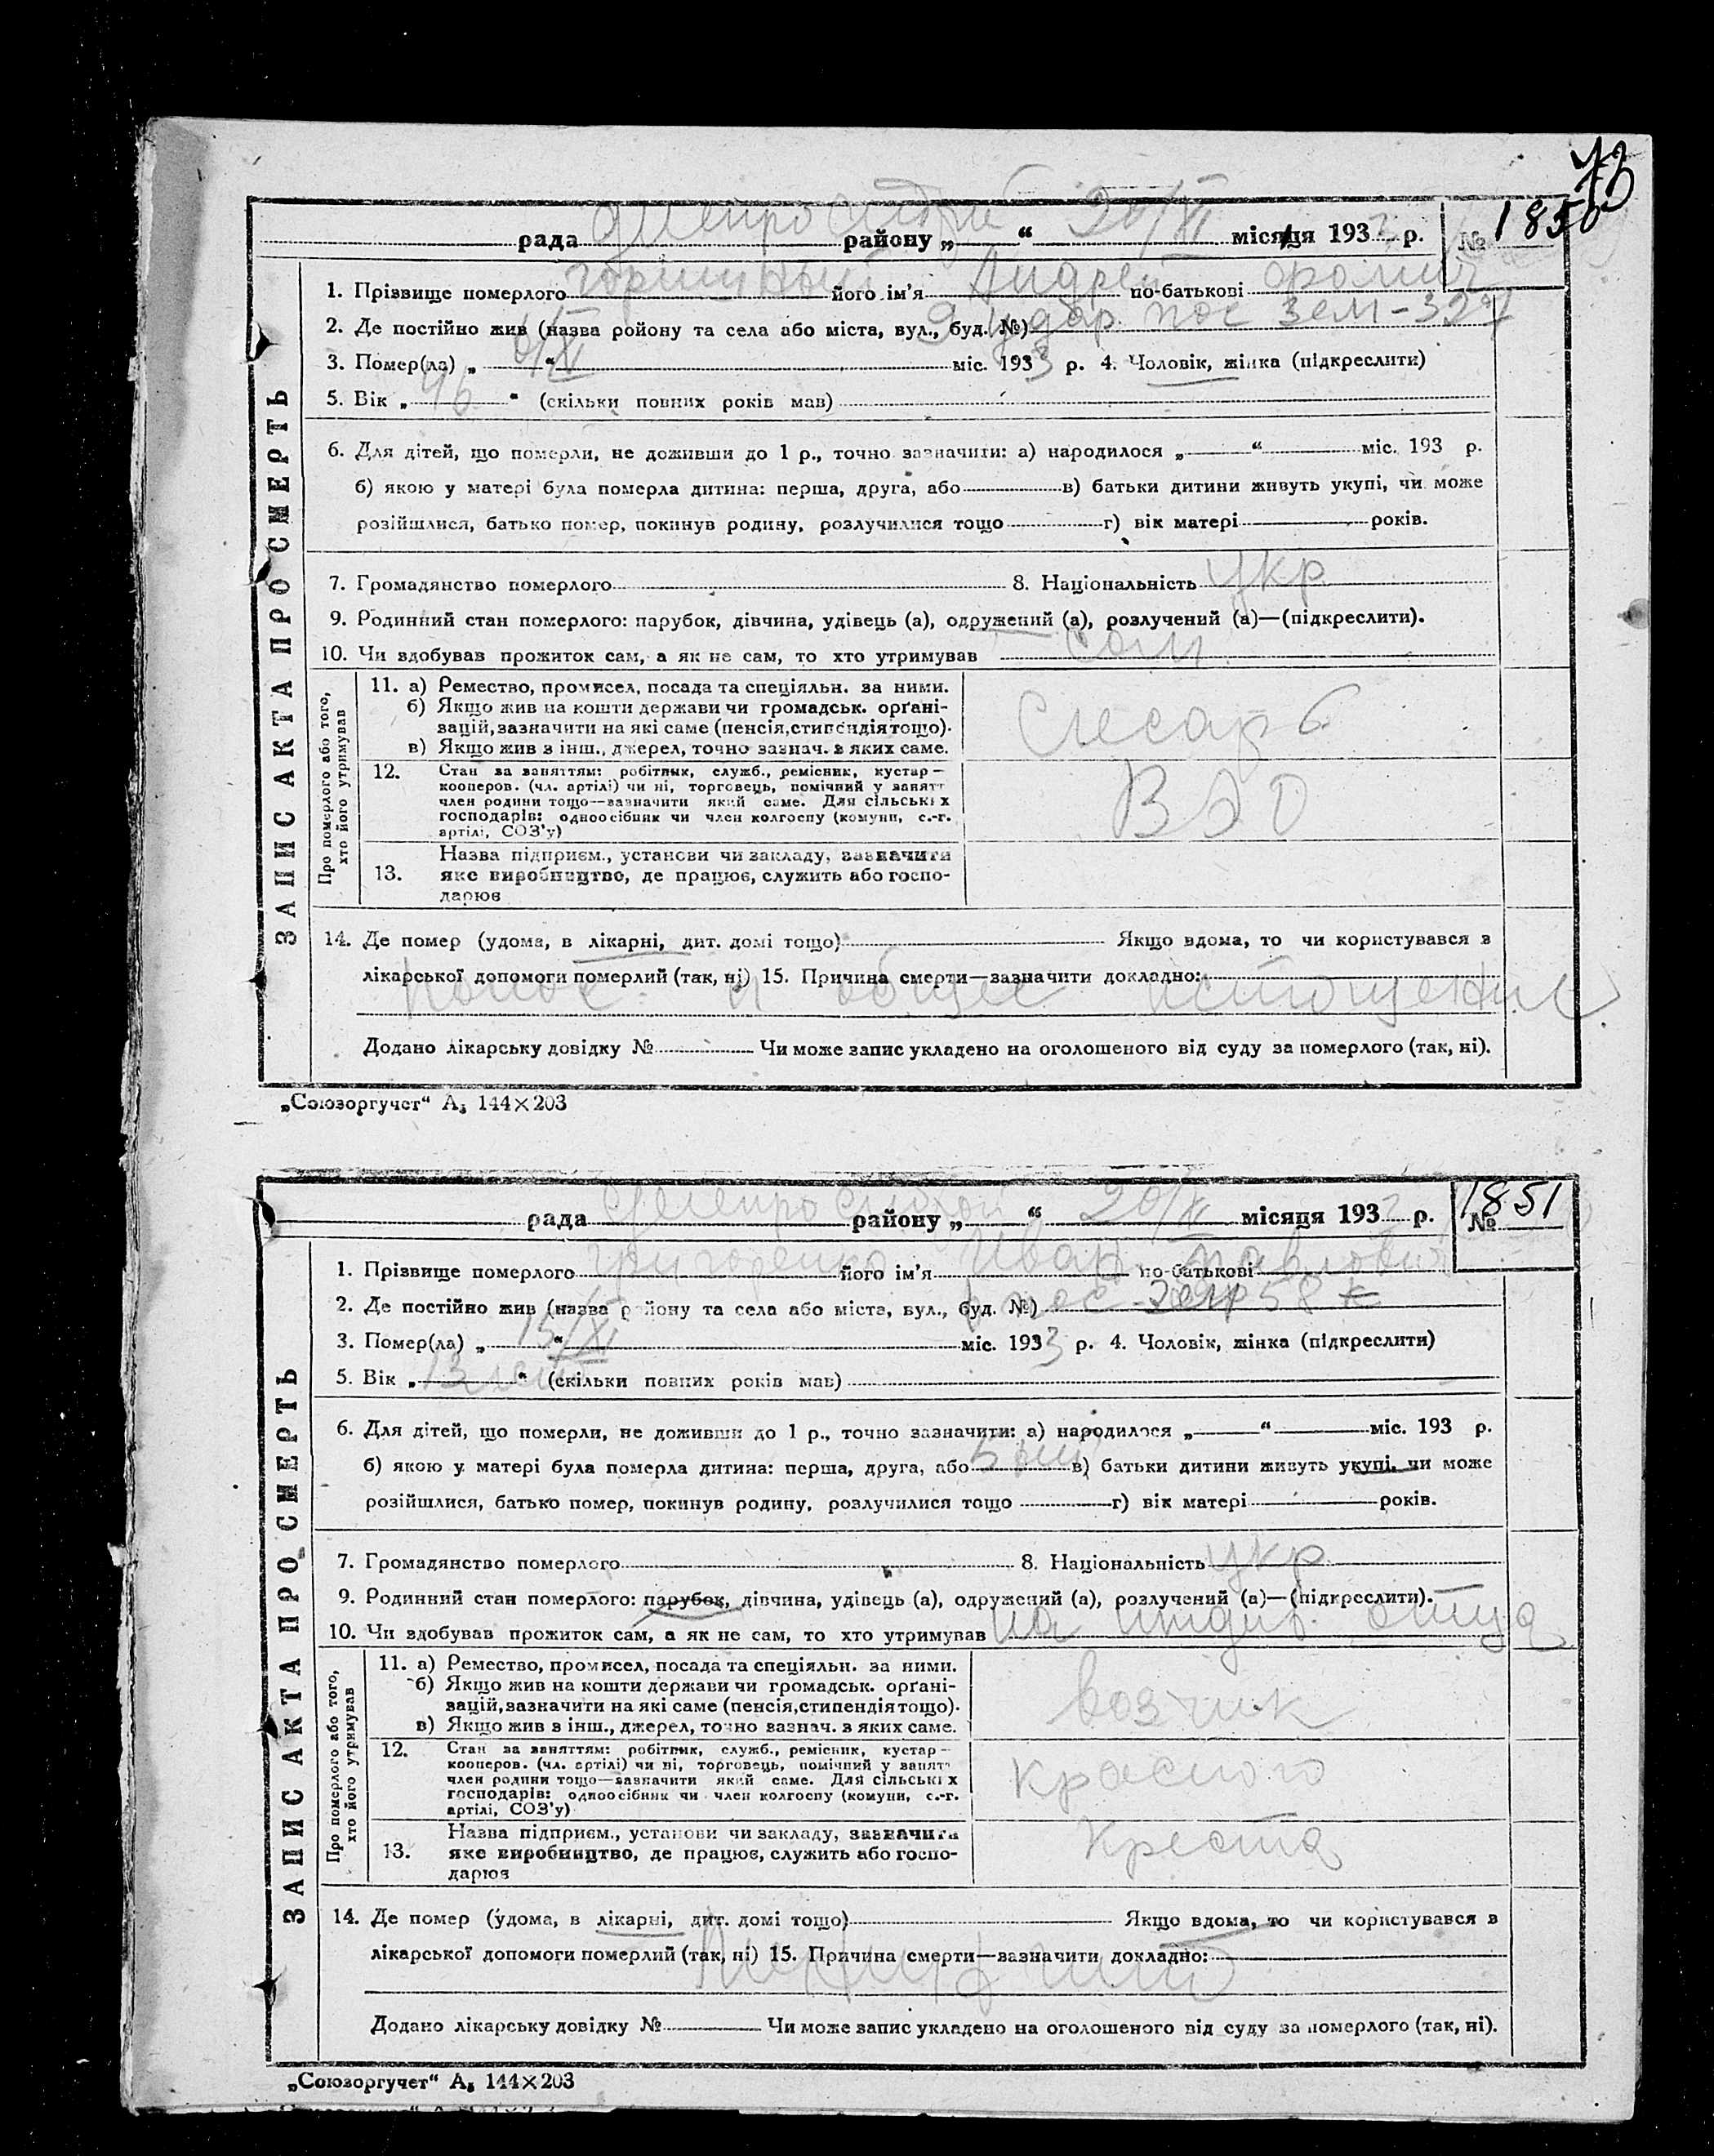 73
рада Днепрострой району „ “ 20/XI місяця 1933 р. № 1850
1. Прізвище померлого його ім’я Андрей по-батькові
2. Де постійно жив (назва ройону та села або міста, вул., буд. №) пос зем-
3. Помер(ла) „ “ міс. 1933 р. 4. Чоловік, жінка (підкреслити)
5. Вік „ 46 “ (скільки повних років мав)
6. Для дітей, що померли, не доживши до 1 р., точно зазначити: а) народилося „ “ міс. 193 р.
б) якою у матері була померла дитина: перша, друга, або в) батьки дитини живуть укупі, чи може
розійшлися, батько помер, покинув родину, розлучилися тощо г) вік матері років.
7. Громадянство померлого 8. Національність укр
9. Родинний стан померлого: парубок, дівчина, удівець (а), одружений (а), розлучений (а)—(підкреслити).
10. Чи здобував прожиток сам, а як не сам, то хто утримував сам
ЗАПИС АКТА ПРО СМЕРТЬ
Про померлого або того, хто його утримував
11. а) Ремество, промисел, посада та спеціяльн. за ними.
б) Якщо жив на кошти держави чи громадськ. орґані-
зацій, зазначити на які саме (пенсія, стипендія тощо).
в) Якщо жив з інш., джерел, точно зазнач. з яких саме.
Слесарь
12. Стан за заняттям: робітник, служб., ремісник, кустар—
кооперов. (чл. артілі) чи ні, торговець, помічний у занятт
член родини тощо—зазначити який саме. Для сільських
господарів: одноосібник чи член колгоспу (комуни, с.-г.
артілі, СОЗ’у)
13. Назва підприєм., установи чи закладу, зазначити
яке виробництво, де працює, служить або госпо-
дарює
14. Де помер (удома, в лікарні, дит. домі тощо) Якщо вдома, то чи користувався з
лікарської допомоги померлий (так, ні) 15. Причина смерти—зазначити докладно:
Понос и общее истощение
Додано лікарську довідку № Чи може запис укладено на оголошеного від суду за померлого (так, ні).
„Союзоргучет“ А₅ 144×203
рада Днепрострой району „ “ 20/XI місяця 1933 р. № 1851
1. Прізвище померлого Григоренко його ім’я Иван по-батькові Павлович
2. Де постійно жив (назва ройону та села або міста, вул., буд. №) пос
3. Помер(ла) „ 15/XI “ міс. 1933 р. 4. Чоловік, жінка (підкреслити)
5. Вік „ 13 лет “ (скільки повних років мав)
6. Для дітей, що померли, не доживши до 1 р., точно зазначити: а) народилося „ “ міс. 193 р.
б) якою у матері була померла дитина: перша, друга, або в) батьки дитини живуть укупі, чи може
розійшлися, батько помер, покинув родину, розлучилися тощо г) вік матері років.
7. Громадянство померлого 8. Національність укр
9. Родинний стан померлого: парубок, дівчина, удівець (а), одружений (а), розлучений (а)—(підкреслити).
10. Чи здобував прожиток сам, а як не сам, то хто утримував на иждив. отца
ЗАПИС АКТА ПРО СМЕРТЬ
Про померлого або того, хто його утримував
11. а) Ремество, промисел, посада та спеціяльн. за ними.
б) Якщо жив на кошти держави чи громадськ. орґані-
зацій, зазначити на які саме (пенсія, стипендія тощо).
в) Якщо жив з інш., джерел, точно зазнач. з яких саме.
возчик
12. Стан за заняттям: робітник, служб., ремісник, кустар—
кооперов. (чл. артілі) чи ні, торговець, помічний у занятт
член родини тощо—зазначити який саме. Для сільських
господарів: одноосібник чи член колгоспу (комуни, с.-г.
артілі, СОЗ’у)
Красного
13. Назва підприєм., установи чи закладу, зазначити
яке виробництво, де працює, служить або госпо-
дарює
Креста
14. Де помер (удома, в лікарні, дит. домі тощо) Якщо вдома, то чи користувався з
лікарської допомоги померлий (так, ні) 15. Причина смерти—зазначити докладно:
Менингит
Додано лікарську довідку № Чи може запис укладено на оголошеного від суду за померлого (так, ні).
„Союзоргучет“ А₅ 144×203